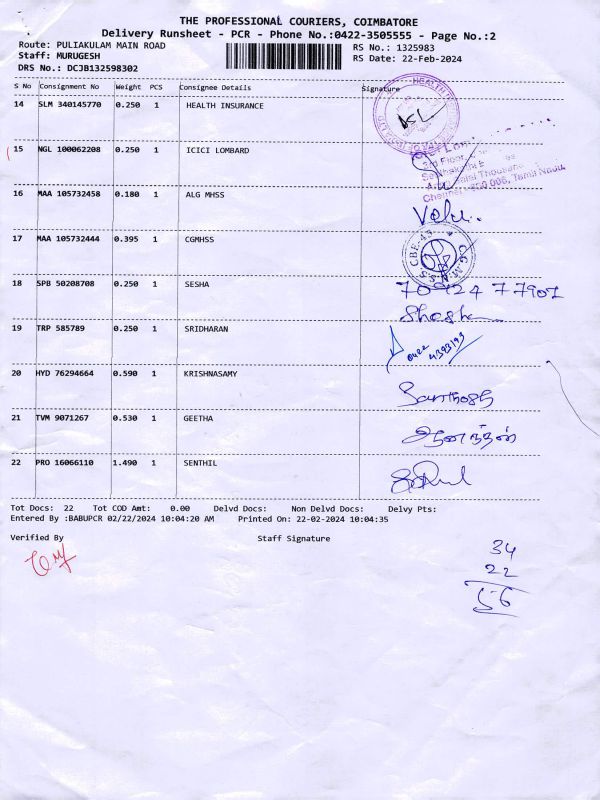 THE PROFESSIONAL COURIERS, COIMBATORE
Delivery Runsheet - PCR - Phone No.:0422-3505555 - Page No.:2
Route: PULIAKULAM MAIN ROAD RS No.: 1325983
Staff: MURUGESH RS Date: 22-Feb-2024
DRS No.: DCJB132598302
S No Consignment No Weight PCS Consignee Details Signature
14 SLM 340145770 0.250 1 HEALTH INSURANCE
15 NGL 100062208 0.250 1 ICICI LOMBARD
16 MAA 105732458 0.180 1 ALG MHSS
17 MAA 105732444 0.395 1 CGMHSS
CBE-45 C.G.M.H.S.S.
18 SPB 50208708 0.250 1 SESHA 70924 77901
19 TRP 585789 0.250 1 SRIDHARAN 0422 4393193
20 HYD 76294664 0.590 1 KRISHNASAMY Santhosh
21 TVM 9071267 0.530 1 GEETHA ஆனந்தன்
22 PRO 16066110 1.490 1 SENTHIL
Tot Docs: 22 Tot COD Amt: 0.00 Delvd Docs: Non Delvd Docs: Delvy Pts:
Entered By :BABUPCR 02/22/2024 10:04:20 AM Printed On: 22-02-2024 10:04:35
Verified By Staff Signature
34
22
56